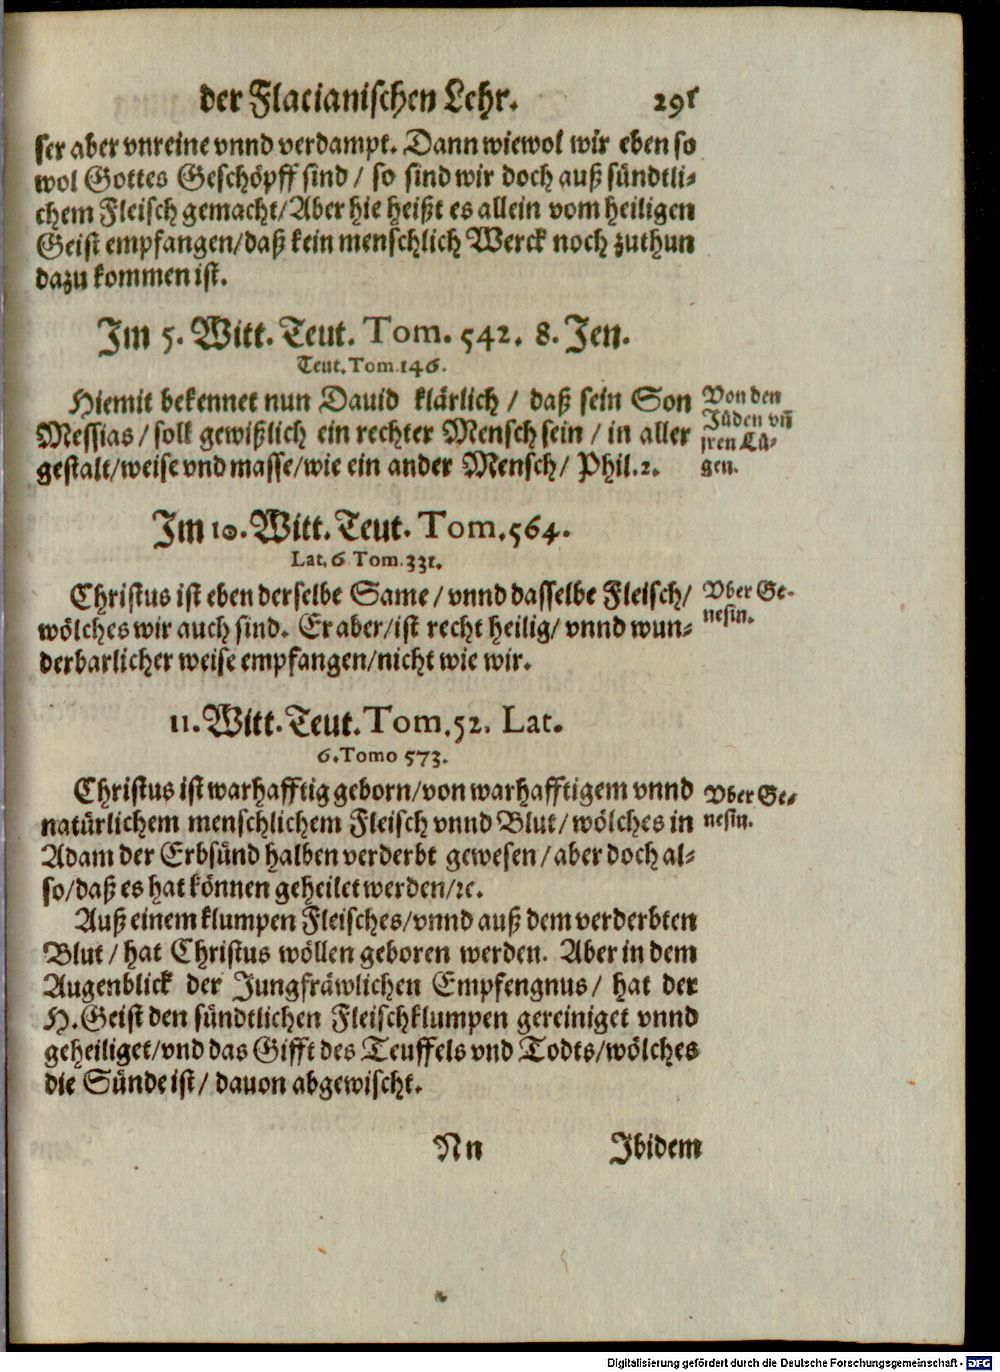 der Flacianischen Lehr. 291
ser aber vnreine vnnd verdampt. Dann wiewol wir eben so
wol Gottes Geschöpff sind / so sind wir doch auß sündtli-
chem Fleisch gemacht/Aber hie heißt es allein vom heiligen
Geist empfangen/daß kein menschlich Werck noch zuthun
dazu kommen ist.
Im 5. Witt. Teut. Tom. 542. 8. Jen.
Teut. Tom 146.
Hiemit bekennet nun Dauid klärlich / daß sein Son
Messias / soll gewißlich ein rechter Mensch sein / in aller
gestalt/weise vnd masse/wie ein ander Mensch/ Phil.2.
Von den
Jüden vñ
jren Lü-
gen.
Im 10. Witt. Teut. Tom. 564.
Lat. 6 Tom. 331.
Christus ist eben derselbe Same / vnnd dasselbe Fleisch/
wölches wir auch sind. Er aber/ist recht heilig/ vnnd wun-
derbarlicher weise empfangen/nicht wie wir.
Vber Ge-
nesin.
11. Witt. Teut. Tom. 52. Lat.
6. Tomo 573.
Christus ist warhafftig geborn/von warhafftigem vnnd
natürlichem menschlichem Fleisch vnnd Blut/ wölches in
Adam der Erbsünd halben verderbt gewesen / aber doch al-
so/daß es hat können geheilet werden/ꝛc.
Vber Ge-
nesin.
Auß einem klumpen Fleisches/vnnd auß dem verderbten
Blut / hat Christus wöllen geboren werden. Aber in dem
Augenblick der Jungfräwlichen Empfengnus / hat der
H. Geist den sündtlichen Fleischklumpen gereiniget vnnd
geheiliget/vnd das Gifft des Teuffels vnd Todts/wölches
die Sünde ist / dauon abgewischt.
Nn Ibidem
Digitalisierung gefördert durch die Deutsche Forschungsgemeinschaft - DFG